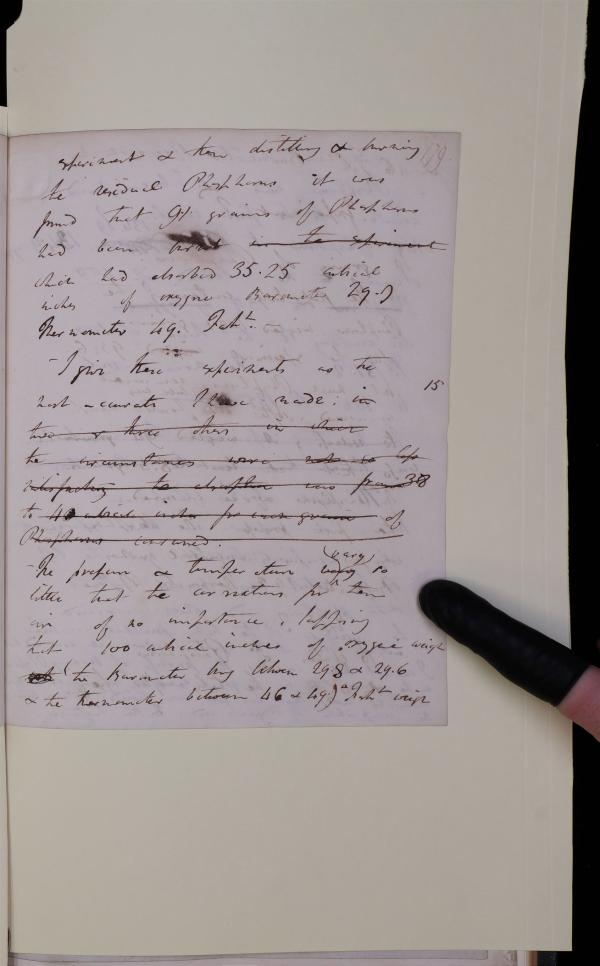 experiment & then distilling & burning 179
the residual Phosphorus it was
found that 9½ grains of Phosphorus
had been burnt in the experiment
which had absorbed 35.25 cubical
inches of oxygene Barometer 29.7
Thermometer 49. Faht.
- I give these experiments as the
most accurate I have made; in 15
two or three others in which
the circumstances were not so
satisfactory the absorption was from 38
to 40 cubical inches for each grain of
Phosphorus consumed.
(vary)
- The pressure & temperature vary so
little that the corrections for them
are of no importance. Supposing
that 100 cubical inches of oxygene weigh
(the Barometer being between 29.8 & 29.6
& the thermometer between 46 & 49) Faht weigh